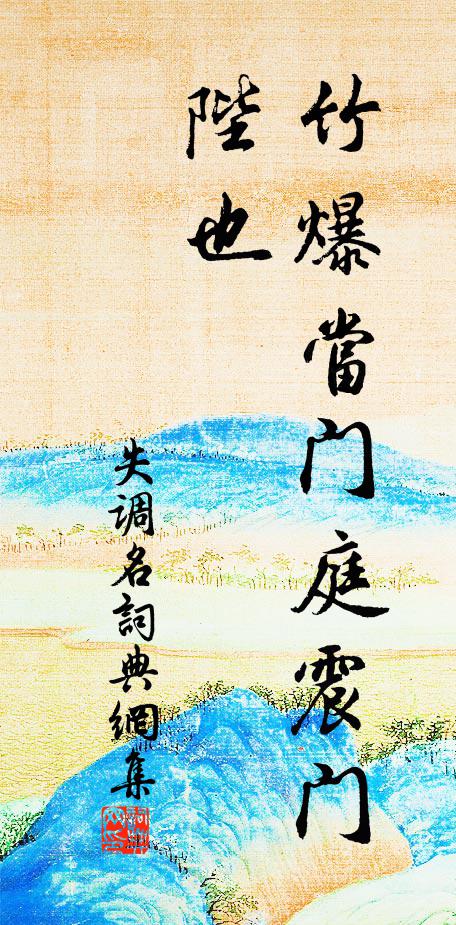 竹爆當門庭震門
陛也
失調名詞典網集